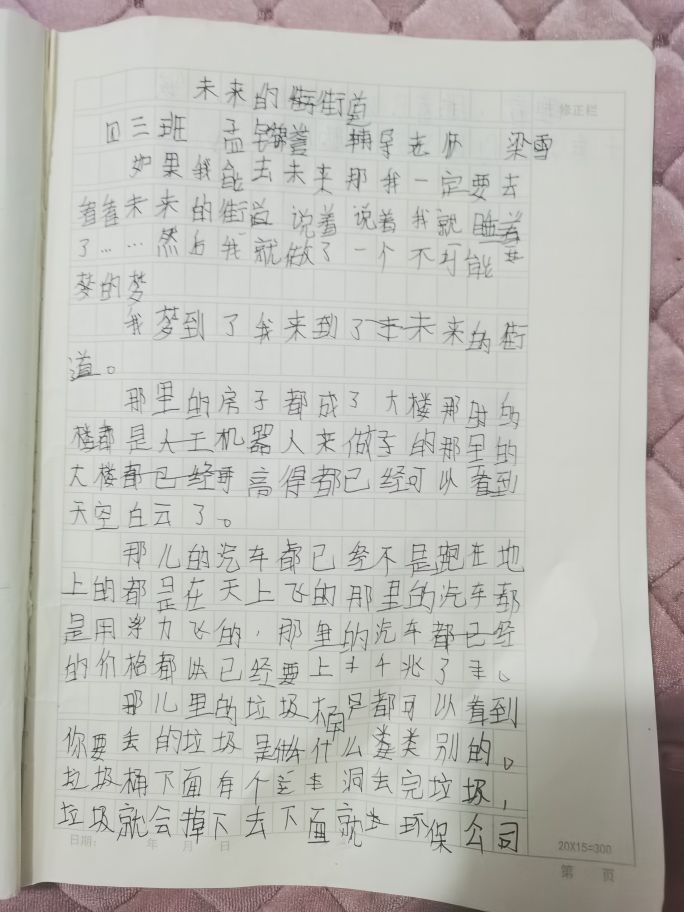 未来的街街道
修正栏
四三班 孟 辅导老师 梁雪
如果我能去未来那我一定要去
看看未来的街道说着说着我就睡着
了……然后我就做了一个不可能
梦的梦
我梦到了我来到了未来的街
道。
那里的房子都成了大楼那时的
楼都是人工机器人来做子的那里的
大楼都已经哥高得都已经可以看到
天空白云了。
那儿的汽车都已经不是跑在地
上的都是在天上飞的那里的汽车都
是用 力飞的，那里的汽车都已经
的价格都 已经要上 千兆了 。
那儿里的垃圾桶 都可以看到
你要丢的垃圾是 什么 类别的。
垃圾桶下面有个 洞丢完垃圾，
垃圾就会掉下去下面就 环保公司
日期： 年 月 日
20X15=300
第 页